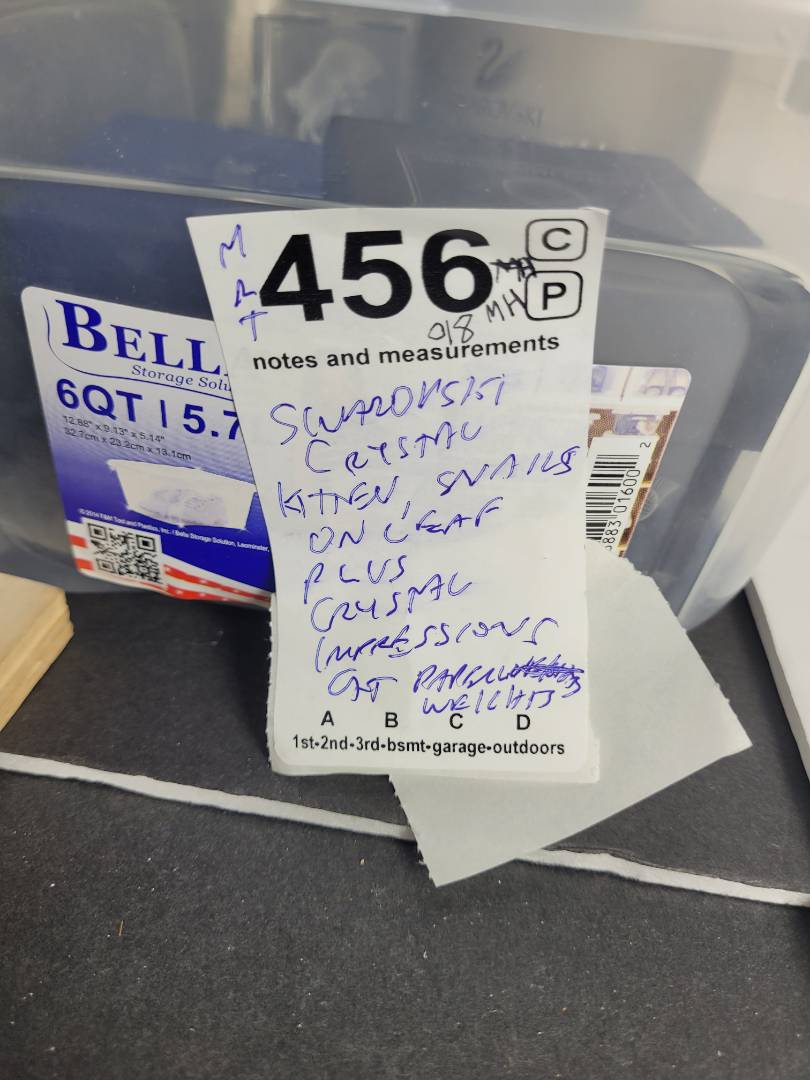 M
A
T
456
C
P
018 MH
notes and measurements
SWAROVSKI
CRYSTAL
KITTEN, SNAILS
ON LEAF
PLUS
CRYSTAL
IMPRESSIONS
PAPER
WEIGHTS
A B C D
1st-2nd-3rd-bsmt-garage-outdoors
BELL
Storage Solu
6QT | 5.7
12.88" x 9.13" x 5.14"
32.7cm x 23.2cm x 13.1cm
883 01600 2